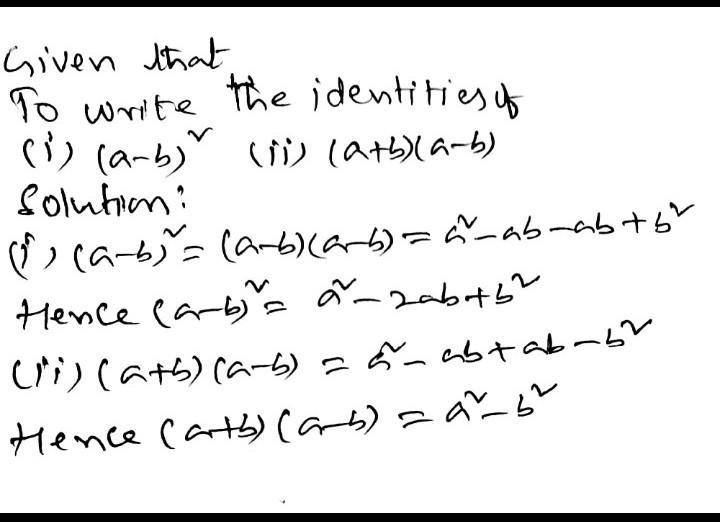 Given that
To write the identities of
(i) (a-b)² (ii) (a+b)(a-b)
Solution:
(i) (a-b)² = (a-b)(a-b) = a²-ab-ab+b²
Hence (a-b)² = a²-2ab+b²
(ii) (a+b)(a-b) = a²-ab+ab-b²
Hence (a+b)(a-b) = a²-b²